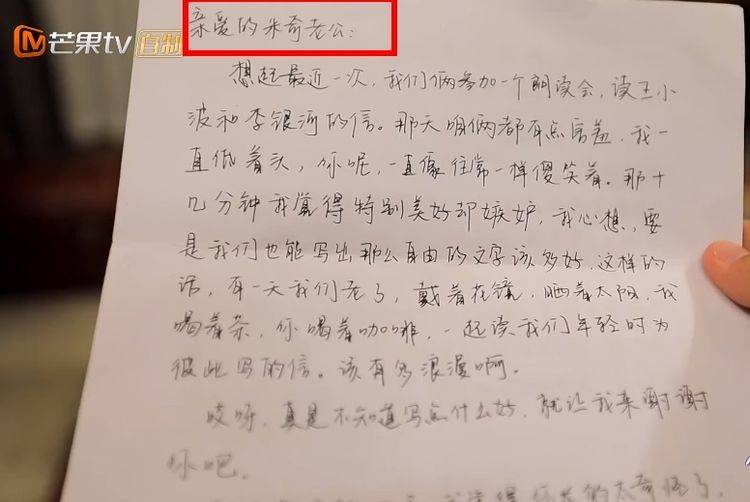 芒果tv 自制
亲爱的米奇老公：
想起最近一次，我们俩参加一个朗读会，读王小
波和李银河的信。那天咱俩都有点害羞，我一
直低着头，你呢，一直像往常一样傻笑着。那十
几分钟我觉得特别美好却嫉妒，我心想，要
是我们也能写出那么自由的文字该多好，这样的
话，有一天我们老了，戴着花镜，晒着太阳，我
喝着茶，你喝着咖啡，一起读我们年轻时为
彼此写的信。该有多浪漫啊。
哎呀，真是不知道写点什么好，就让我来谢谢
你吧。